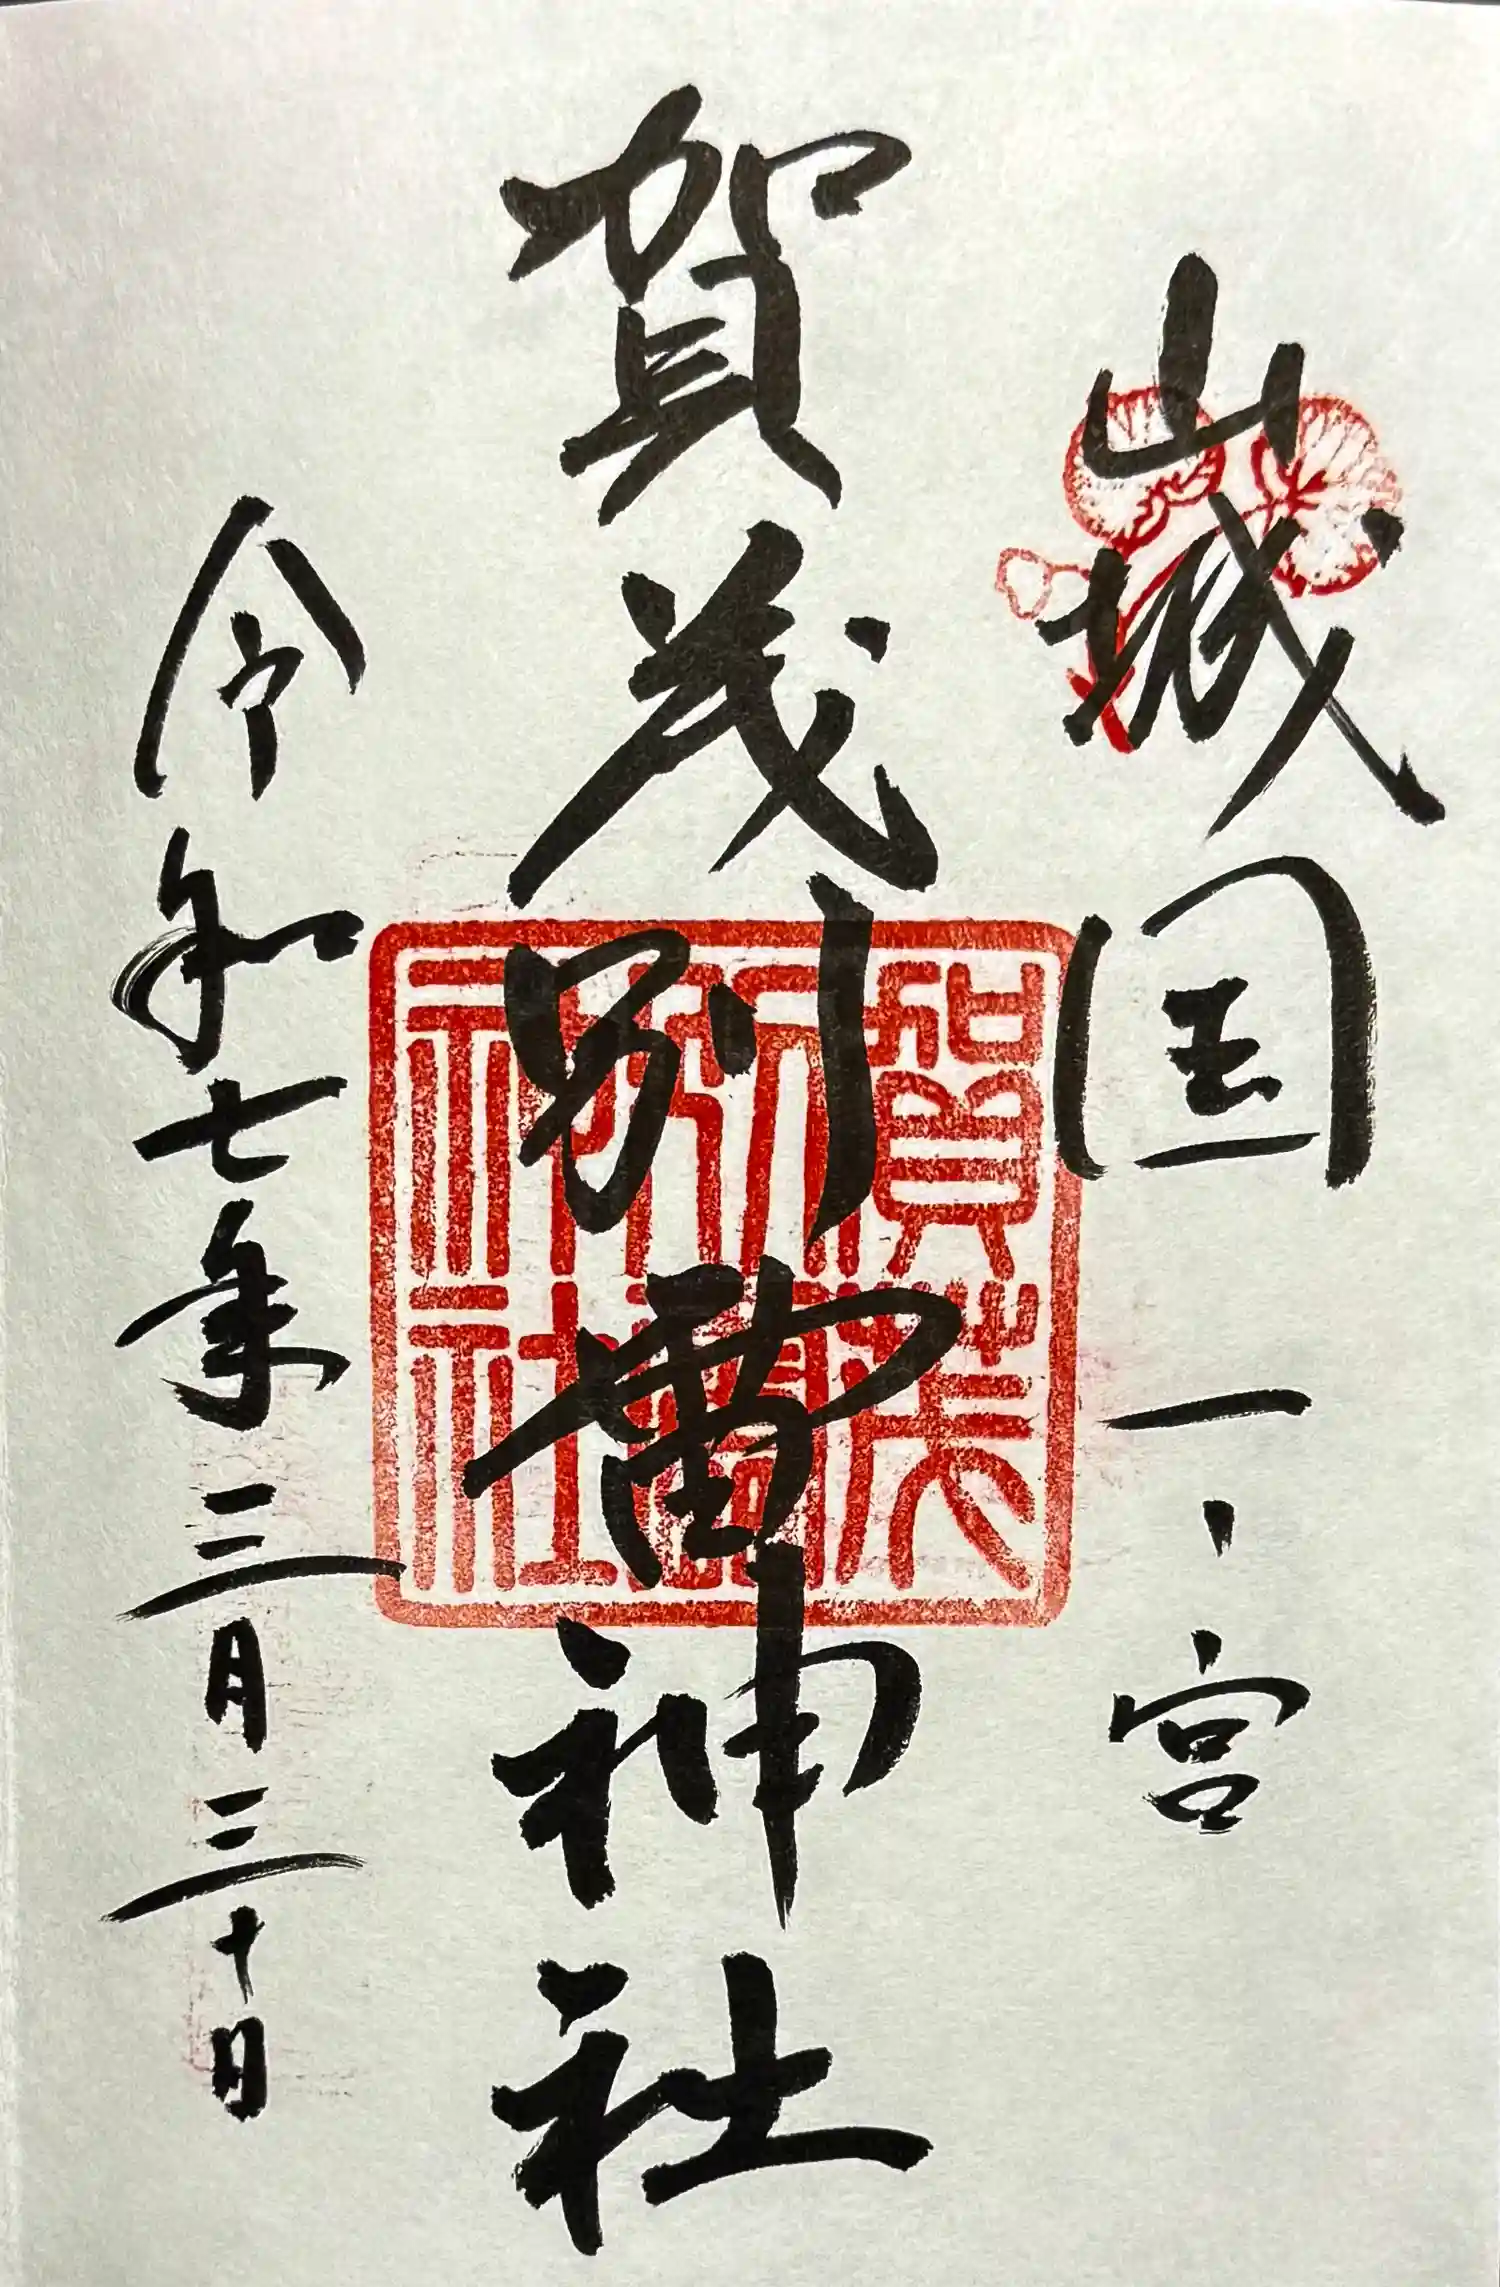 山城国一ノ宮
賀茂別雷神社
令和七年三月三十日
賀茂
別雷
神社